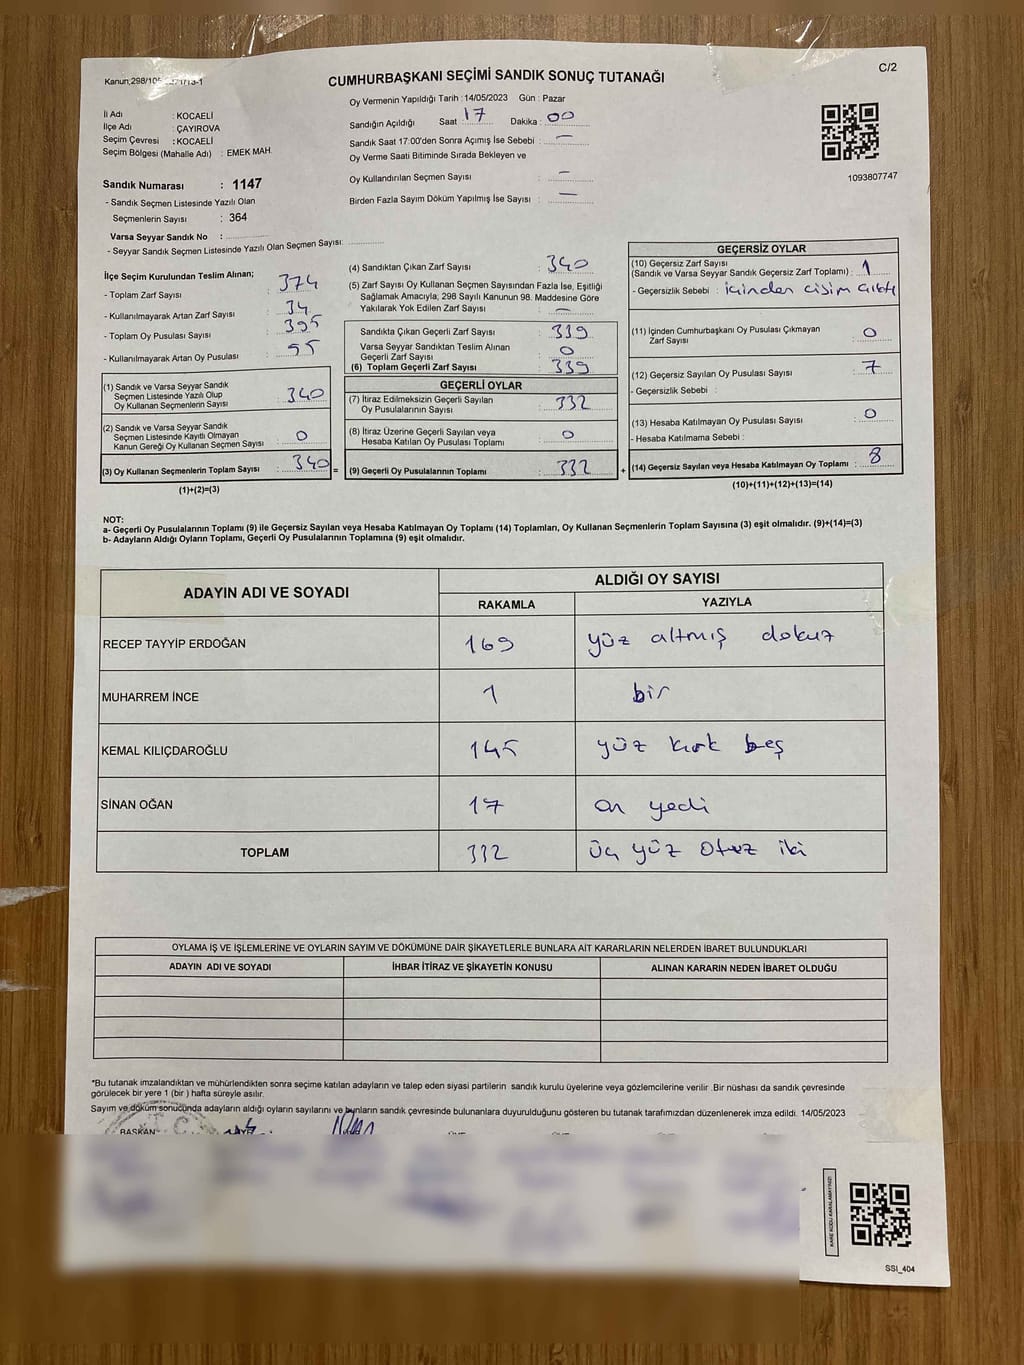 C/2
Kanun:298/105
CUMHURBAŞKANI SEÇİMİ SANDIK SONUÇ TUTANAĞI
Oy Vermenin Yapıldığı Tarih : 14/05/2023 Gün : Pazar
İli Adı : KOCAELİ
İlçe Adı : ÇAYIROVA
Seçim Çevresi : KOCAELİ
Seçim Bölgesi (Mahalle Adı) : EMEK MAH.
Sandık Numarası : 1147
- Sandık Seçmen Listesinde Yazılı Olan
Seçmenlerin Sayısı : 364
Varsa Seyyar Sandık No :
- Seyyar Sandık Seçmen Listesinde Yazılı Olan Seçmen Sayısı:
Sandığın Açıldığı Saat : 17 Dakika : 00
Sandık Saat 17:00'den Sonra Açımış İse Sebebi : —
Oy Verme Saati Bitiminde Sırada Bekleyen ve
Oy Kullandırılan Seçmen Sayısı : —
Birden Fazla Sayım Döküm Yapılmış İse Sayısı : —
1093807747
İlçe Seçim Kurulundan Teslim Alınan;
- Toplam Zarf Sayısı : 374
- Kullanılmayarak Artan Zarf Sayısı : 34
- Toplam Oy Pusulası Sayısı : 395
- Kullanılmayarak Artan Oy Pusulası : 55
(1) Sandık ve Varsa Seyyar Sandık
Seçmen Listesinde Yazılı Olup
Oy Kullanan Seçmenlerin Sayısı : 340
(2) Sandık ve Varsa Seyyar Sandık
Seçmen Listesinde Kayıtlı Olmayan
Kanun Gereği Oy Kullanan Seçmen Sayısı : 0
(3) Oy Kullanan Seçmenlerin Toplam Sayısı : 340 =
(1)+(2)=(3)
(4) Sandıktan Çıkan Zarf Sayısı : 340
(5) Zarf Sayısı Oy Kullanan Seçmen Sayısından Fazla İse, Eşitliği
Sağlamak Amacıyla, 298 Sayılı Kanunun 98. Maddesine Göre
Yakılarak Yok Edilen Zarf Sayısı : —
Sandıkta Çıkan Geçerli Zarf Sayısı : 339
Varsa Seyyar Sandıktan Teslim Alınan
Geçerli Zarf Sayısı : 0
(6) Toplam Geçerli Zarf Sayısı : 339
GEÇERLİ OYLAR
(7) İtiraz Edilmeksizin Geçerli Sayılan
Oy Pusulalarının Sayısı : 332
(8) İtiraz Üzerine Geçerli Sayılan veya
Hesaba Katılan Oy Pusulası Toplamı : 0
(9) Geçerli Oy Pusulalarının Toplamı : 332 +
GEÇERSİZ OYLAR
(10) Geçersiz Zarf Sayısı
(Sandık ve Varsa Seyyar Sandık Geçersiz Zarf Toplamı) : 1
- Geçersizlik Sebebi : içinden cisim çıktı
(11) İçinden Cumhurbaşkanı Oy Pusulası Çıkmayan
Zarf Sayısı : 0
(12) Geçersiz Sayılan Oy Pusulası Sayısı : 7
- Geçersizlik Sebebi :
(13) Hesaba Katılmayan Oy Pusulası Sayısı : 0
- Hesaba Katılmama Sebebi :
(14) Geçersiz Sayılan veya Hesaba Katılmayan Oy Toplamı : 8
(10)+(11)+(12)+(13)=(14)
NOT:
a- Geçerli Oy Pusulalarının Toplamı (9) ile Geçersiz Sayılan veya Hesaba Katılmayan Oy Toplamı (14) Toplamları, Oy Kullanan Seçmenlerin Toplam Sayısına (3) eşit olmalıdır. (9)+(14)=(3)
b- Adayların Aldığı Oyların Toplamı, Geçerli Oy Pusulalarının Toplamına (9) eşit olmalıdır.
ADAYIN ADI VE SOYADI ALDIĞI OY SAYISI
RAKAMLA YAZIYLA
RECEP TAYYİP ERDOĞAN 169 yüz altmış dokuz
MUHARREM İNCE 1 bir
KEMAL KILIÇDAROĞLU 145 yüz kırk beş
SİNAN OĞAN 17 on yedi
TOPLAM 332 üç yüz otuz iki
OYLAMA İŞ VE İŞLEMLERİNE VE OYLARIN SAYIM VE DÖKÜMÜNE DAİR ŞİKAYETLERLE BUNLARA AİT KARARLARIN NELERDEN İBARET BULUNDUKLARI
ADAYIN ADI VE SOYADI İHBAR İTİRAZ VE ŞİKAYETİN KONUSU ALINAN KARARIN NEDEN İBARET OLDUĞU
*Bu tutanak imzalandıktan ve mühürlendikten sonra seçime katılan adayların ve talep eden siyasi partilerin sandık kurulu üyelerine veya gözlemcilerine verilir .Bir nüshası da sandık çevresinde
görülecek bir yere 1 (bir ) hafta süreyle asılır.
Sayım ve döküm sonucunda adayların aldığı oyların sayılarını ve bunların sandık çevresinde bulunanlara duyurulduğunu gösteren bu tutanak tarafımızdan düzenlenerek imza edildi. 14/05/2023
BAŞKAN
KARE KODU KARALAMAYINIZ!
SSI_404